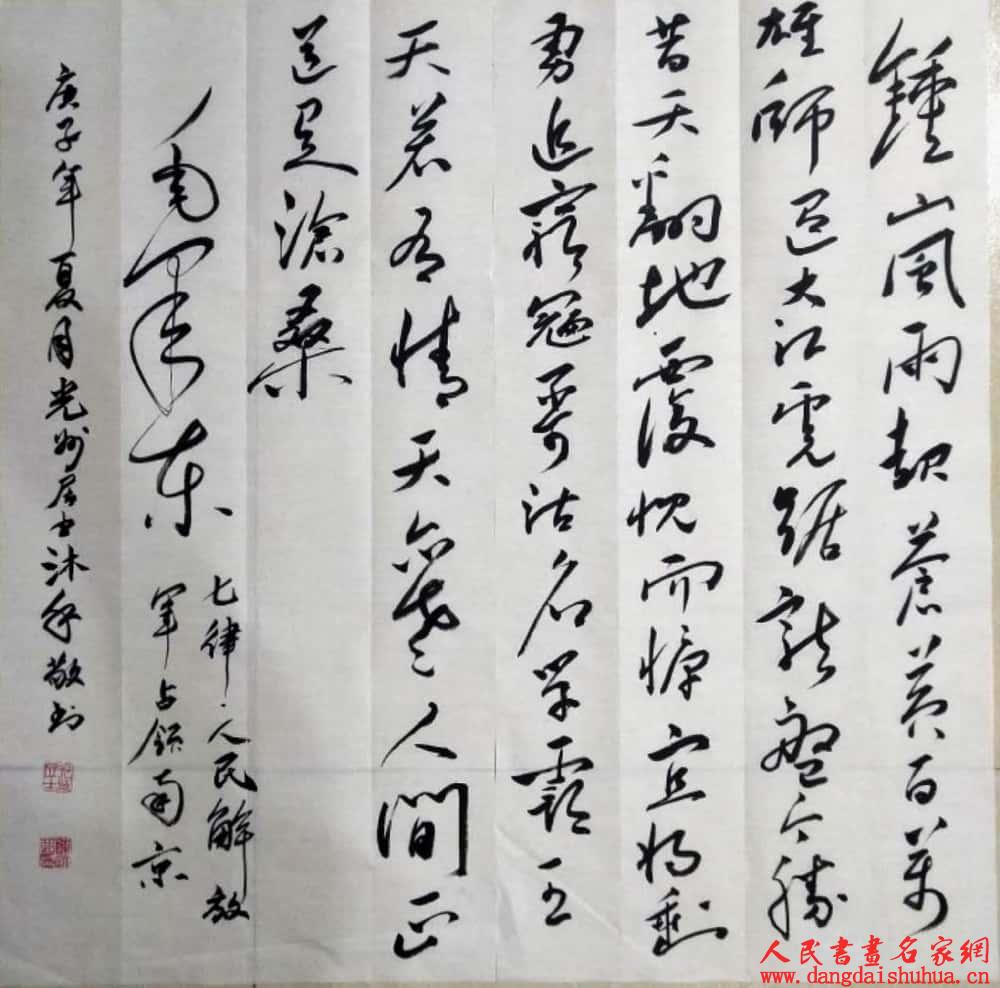 鍾山風雨起蒼黄百萬
雄师过大江虎踞龍盤今勝
昔天翻地覆慨而慷宜将剩
勇追窮寇不可沽名学霸王
天若有情天亦老人間正
道是滄桑
毛泽东
七律·人民解放
军占领南京
庚子年夏月光州居士沐敬书
人民書畫名家網
www.dangdaishuhua.cn